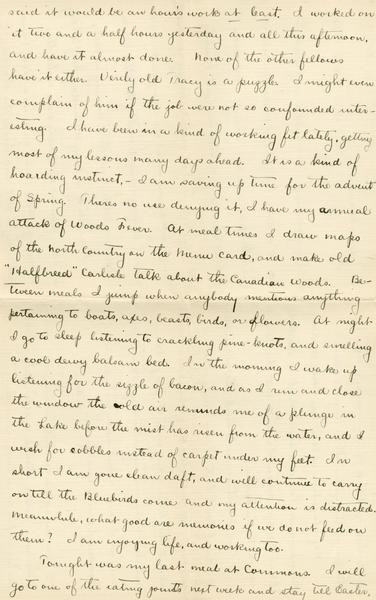 said it would be an hour's work at least. I worked on
it two and a half hours yesterday and all this afternoon,
and have it almost done. None of the other fellows
have it either. Verily old Tracy is a puzzle. I might even
complain of him if the job were not so confounded inter-
esting. I have been in a kind of working fit lately, getting
most of my lessons many days ahead. It is a kind of
hoarding instinct,- I am saving up time for the advent
of Spring. There's no use denying it, I have my annual
attack of Woods Fever. At meal times I draw maps
of the North Country on the Menu card, and make old
"Halfbreed" Carlisle talk about the Canadian Woods. Be-
tween meals I jump when anybody mentions anything
pertaining to boats, axes, beasts, birds, or flowers. At night
I go to sleep listening to crackling pine-knots, and smelling
a cool dewy balsam bed. In the morning I wake up
listening for the sizzle of bacon, and as I run and close
the window the cold air reminds me of a plunge in
the Lake before the mist has risen from the water, and I
wish for cobbles instead of carpet under my feet. In
short I am gone clean daft, and will continue to carry
on till the Bluebirds come and my attention is distracted.
Meanwhile, what good are memories if we do not feed on
them? I am enjoying life, and working too.
Tonight was my last meal at Commons. I will
go to one of the eating joints next week and stay till Easter.